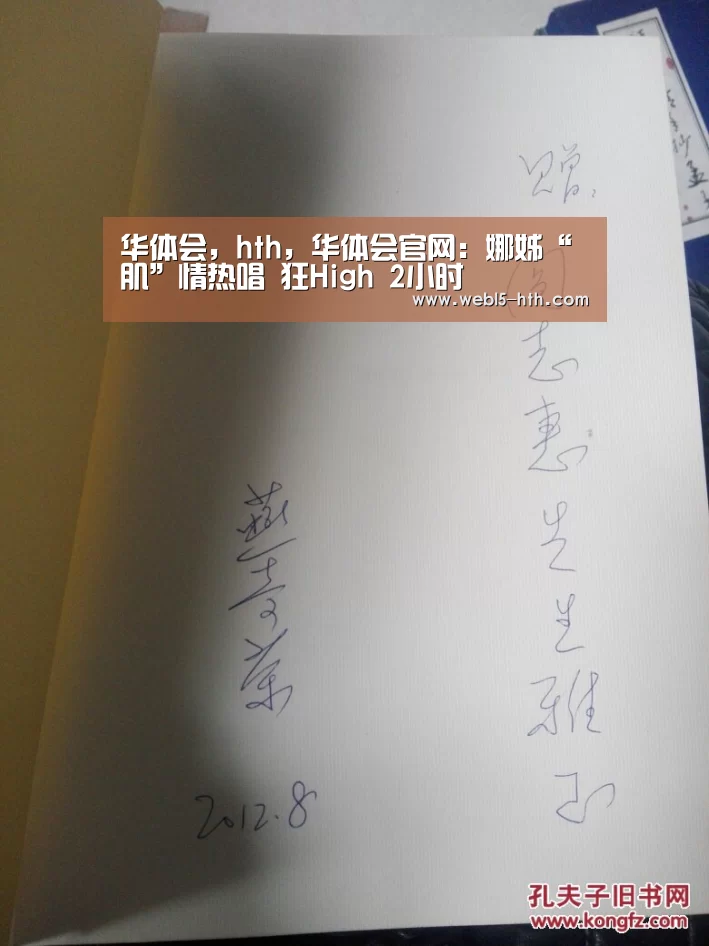 华体会，hth，华体会官网：娜姊“
肌”情热唱 狂High 2小时
www.webl5-hth.com
赠：
志惠先生雅正
2012.8
孔夫子旧书网
www.kongfz.com